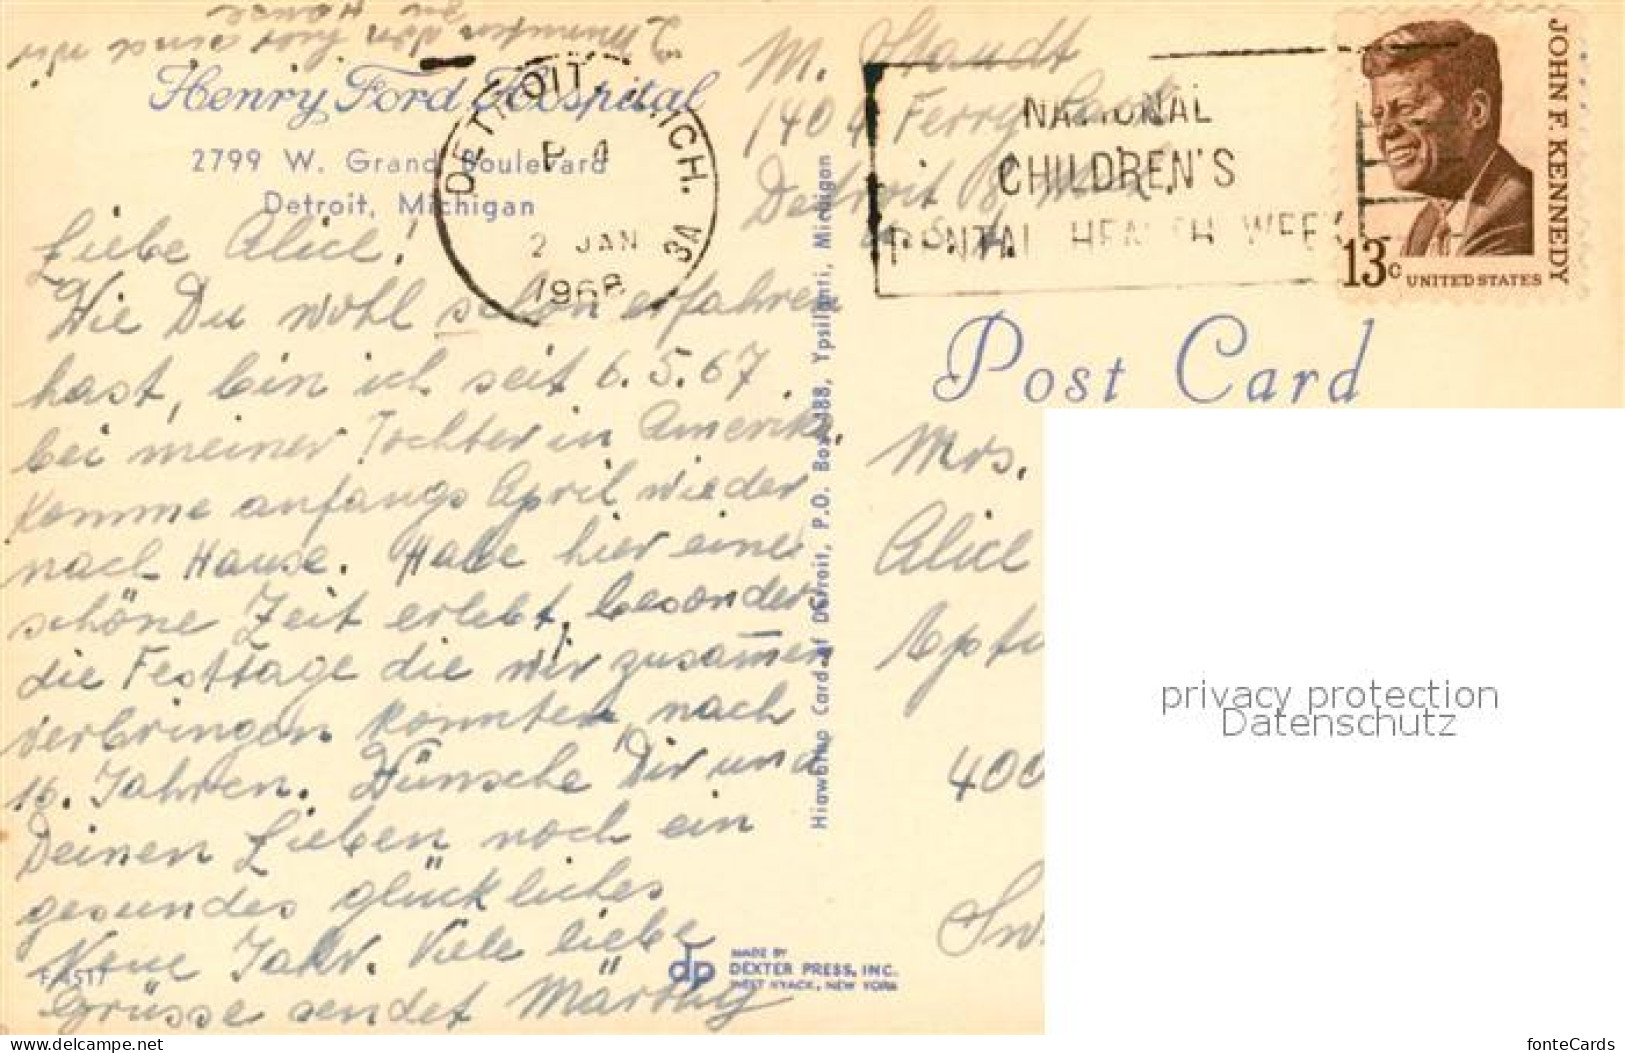 House
zu
2 Minuten von hier sind wir
Henry Ford Hospital
2799 W. Grand Boulevard
Detroit, Michigan
Liebe Alice!
Wie Du wohl schon erfahren
hast, bin ich seit 6.5.67
bei meiner Tochter in Amerika.
Komme anfangs April wieder
nach Hause. Habe hier eine
schöne Zeit erlebt, besonders
die Festtage die wir zusam̅en
verbringen konnten, nach
16. Jahren. Wünsche Dir und
Deinen Lieben noch ein
gesundes glückliches
Neue Jahr. Viele liebe
Grüsse sendet
F-4517
DETROIT, MICH.
P 4
2 JAN
1968
3A
M. Staudt
1404 Ferry
Detroit 8, Mich.
U.S.A.
NATIONAL
CHILDREN'S
DENTAL HEALTH WEEK
JOHN F. KENNEDY
13c UNITED STATES
Post Card
Hiawatha Card of Detroit, P.O. Box 488, Ypsilanti, Michigan
Mrs.
Alice
400
Sw
privacy protection
Datenschutz
dp MADE BY
DEXTER PRESS, INC.
WEST NYACK, NEW YORK
delcampe.net
fonteCards